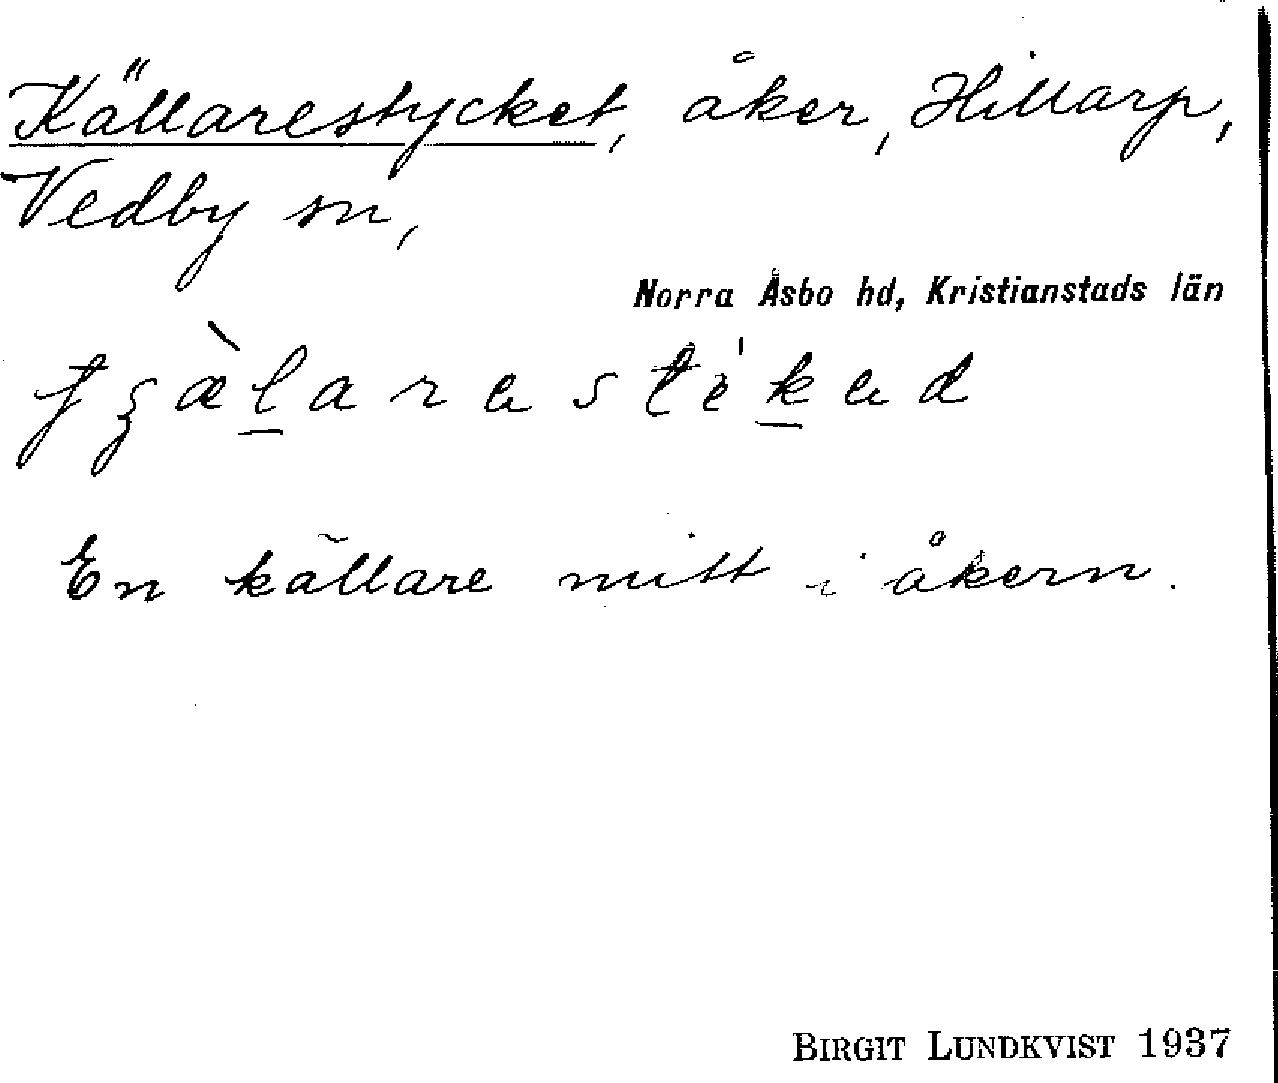 Källarestycket, åker, Hillarp,
Vedby sn,
Norra Åsbo hd, Kristianstads län
En källare mitt i åkern.
BIRGIT LUNDKVIST 1937